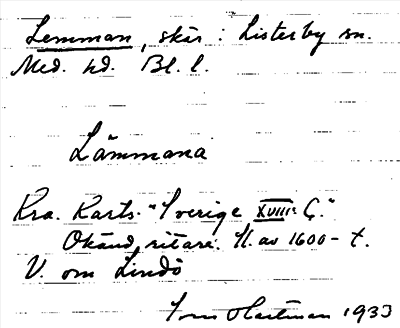 Lemman, skär i Listerby sn.
Med. hd. Bl. l.
Lämmana
Kra. Karts. "Sverige XVIII: Ç."
Okänd ritare. Sl. av 1600-t.
V. om Lindö
Hartman 1933